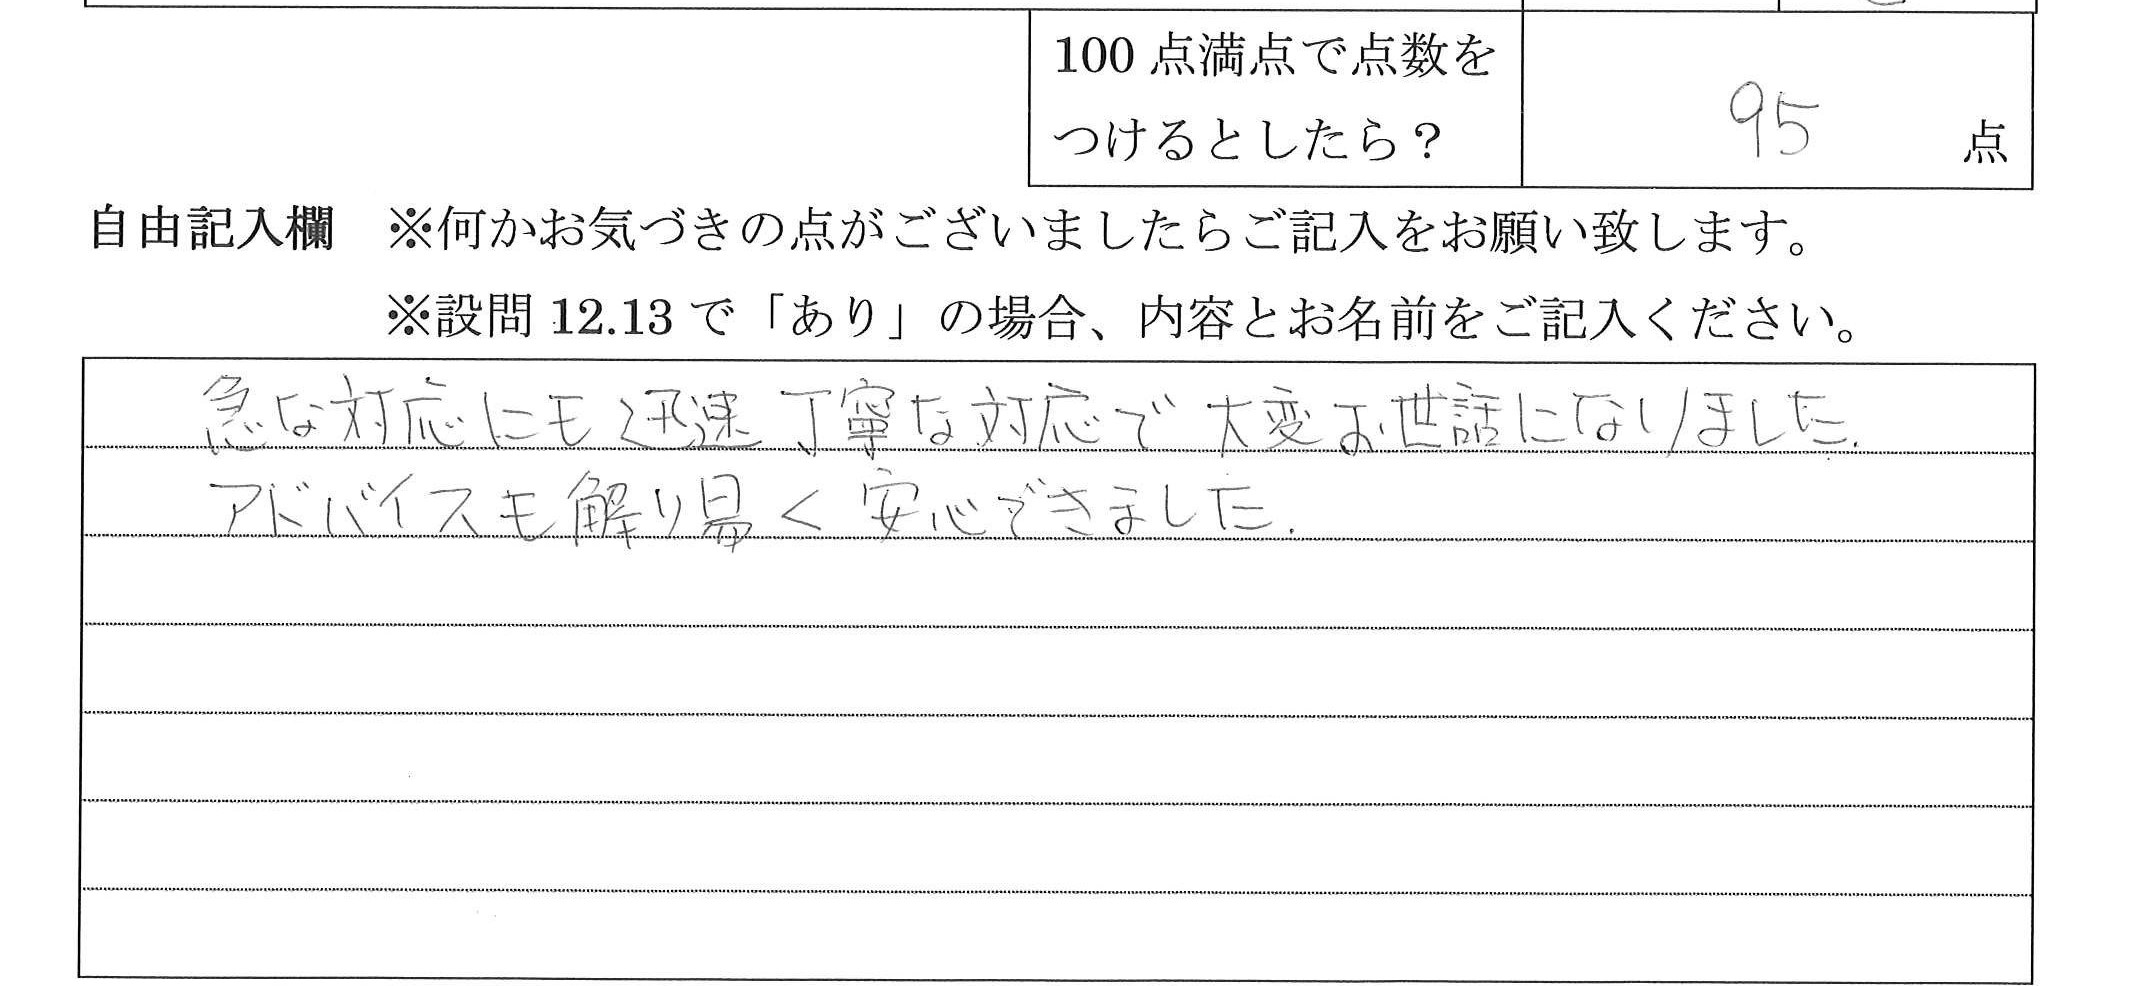 100点満点で点数を
つけるとしたら？
95 点
自由記入欄 ※何かお気づきの点がございましたらご記入をお願い致します。
※設問12.13で「あり」の場合、内容とお名前をご記入ください。
急な対応にも迅速丁寧な対応で大変お世話になりました.
アドバイスも解り易く安心できました.